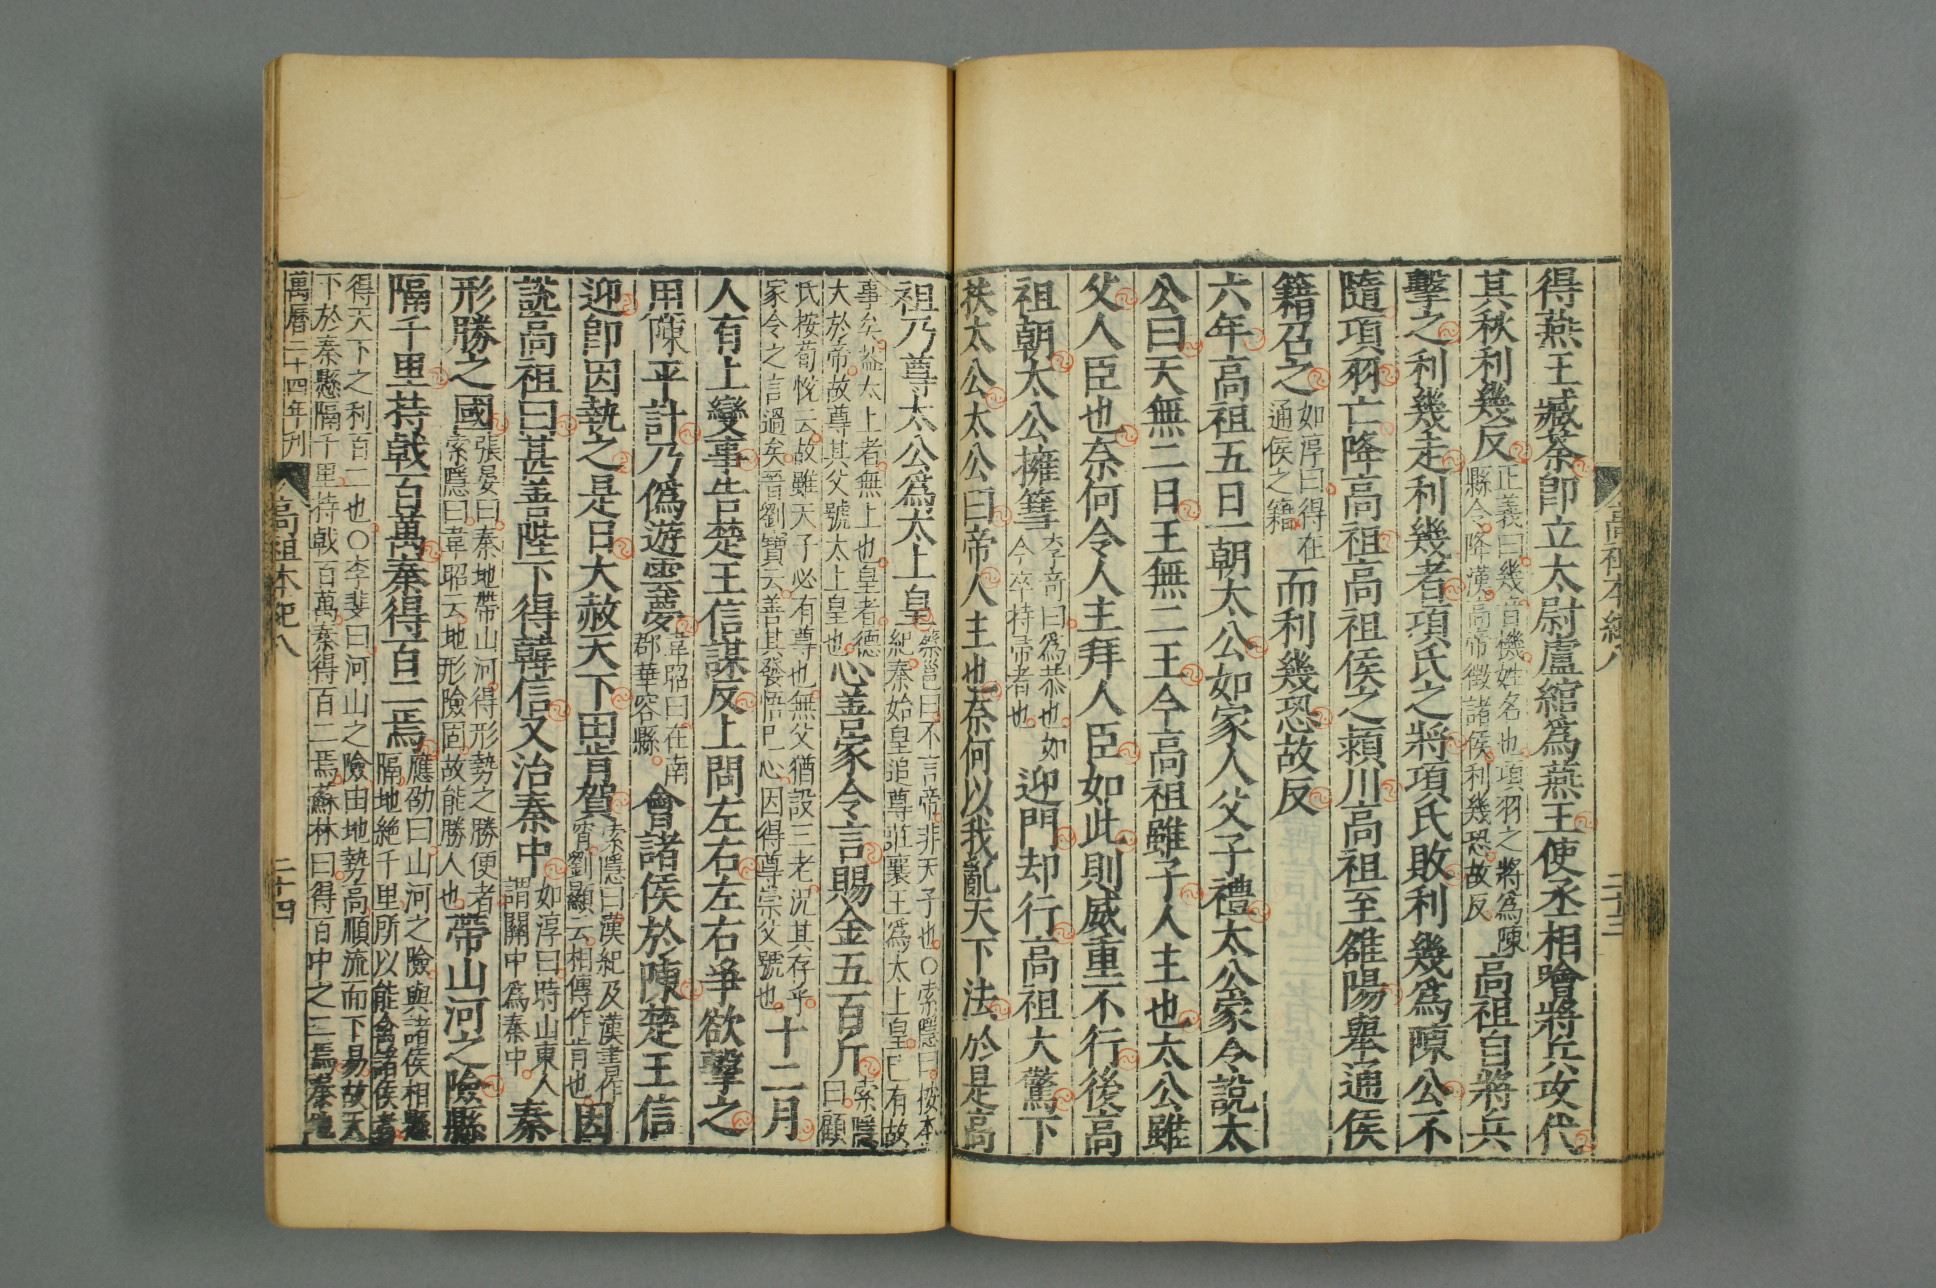 得燕王臧荼卽立太尉盧綰爲燕王使丞相噲將兵攻代
其秋利幾反正義曰幾音機姓名也項羽之將爲陳縣令降漢高帝徵諸侯利幾恐故反高祖自將兵
擊之利幾走利幾者項氏之將項氏敗利幾爲陳公不
隨項羽亡降高祖高祖侯之潁川高祖至雒陽舉通侯
籍召之如淳曰得在通侯之籍而利幾恐故反
六年高祖五日一朝太公如家人父子禮太公家令說太
公曰天無二日土無二王今高祖雖子人主也太公雖
父人臣也奈何令人主拜人臣如此則威重不行後高
祖朝太公擁篲李奇曰爲恭也如今卒持帚者也迎門却行高祖大驚下
扶太公太公曰帝人主也奈何以我亂天下法於是高
高祖本紀八
二十三
祖乃尊太公爲太上皇蔡邕曰不言帝非天子也○索隱曰按本紀秦始皇追尊莊襄王爲太上皇已有故
事矣葢太上者無上也皇者德大於帝故尊其父號太上皇也心善家令言賜金五百斤索隱曰顧
氏按荀悅云故雖天子必有尊也無父猶設三老況其存乎家令之言過矣晉劉寶云善其發悟己心因得尊崇父號也十二月
人有上變事告楚王信謀反上問左右左右爭欲擊之
用陳平計乃僞遊雲夢韋昭曰在南郡華容縣會諸侯於陳楚王信
迎卽因執之是日大赦天下田肯賀索隱曰漢紀及漢書作宵劉顯云相傳作肯也因
說高祖曰甚善陛下得韓信又治秦中如淳曰時山東人謂關中爲秦中秦
形勝之國張晏曰秦地帶山河得形勢之勝便者索隱曰韋昭云地形險固故能勝人也帶山河之險縣
隔千里持戟百萬秦得百二焉應劭曰山河之險與諸侯相縣隔地絶千里所以能禽諸侯者
得天下之利百二也○李斐曰河山之險由地勢高順流而下易故天下於秦縣隔千里持戟百萬秦得百二焉蘇林曰得百中之二焉秦地
萬曆二十四年刊
高祖本紀八
二十四